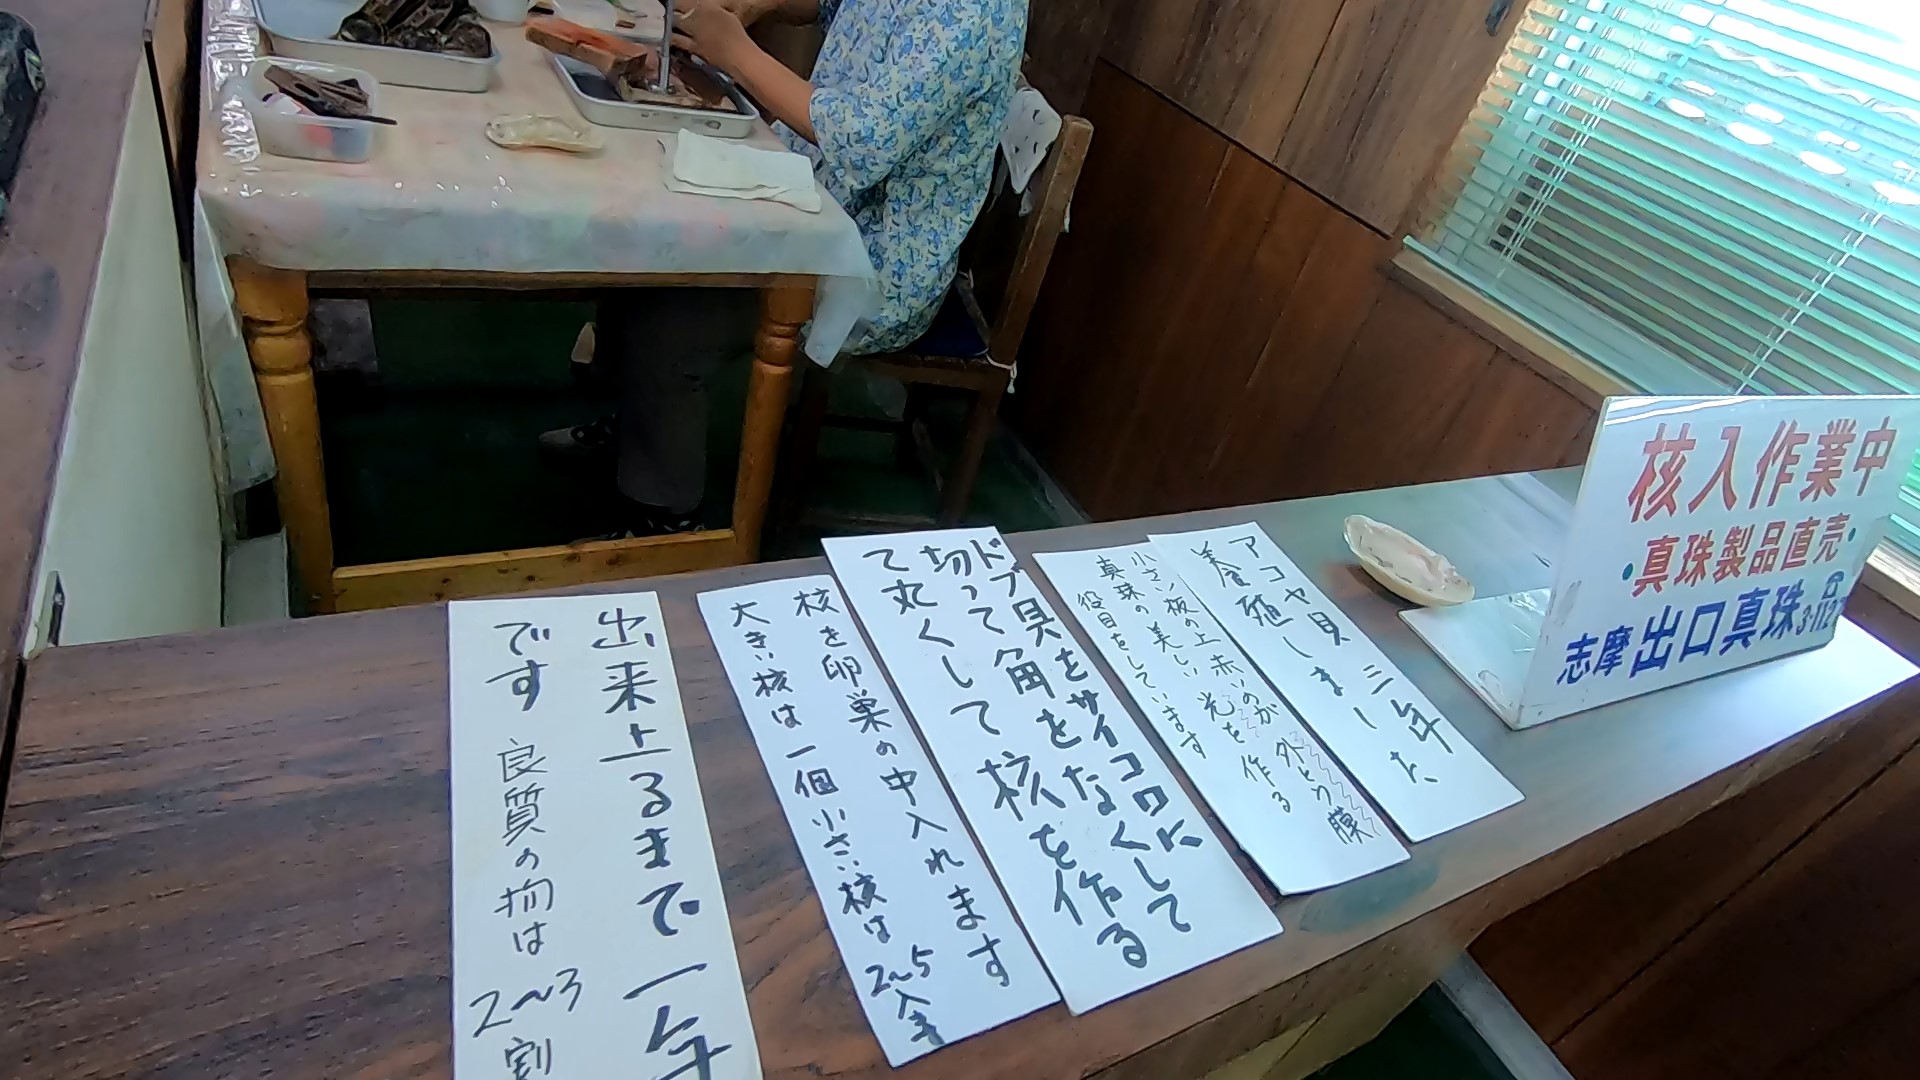 核入作業中
・真珠製品直売・
志摩出口真珠☎3-112
アコヤ貝 三年
養殖しました
小さい板の上 赤いのが 外とう膜
真珠の美しい 光を作る
役目をしています
ドブ貝をサイコロにして
切って角をなくして
て丸くして 核を作る
核を卵巣の中入れます
大きい核は一個小さい核は2~5入ます
出来上るまで一年
です 良質の物は2~3割